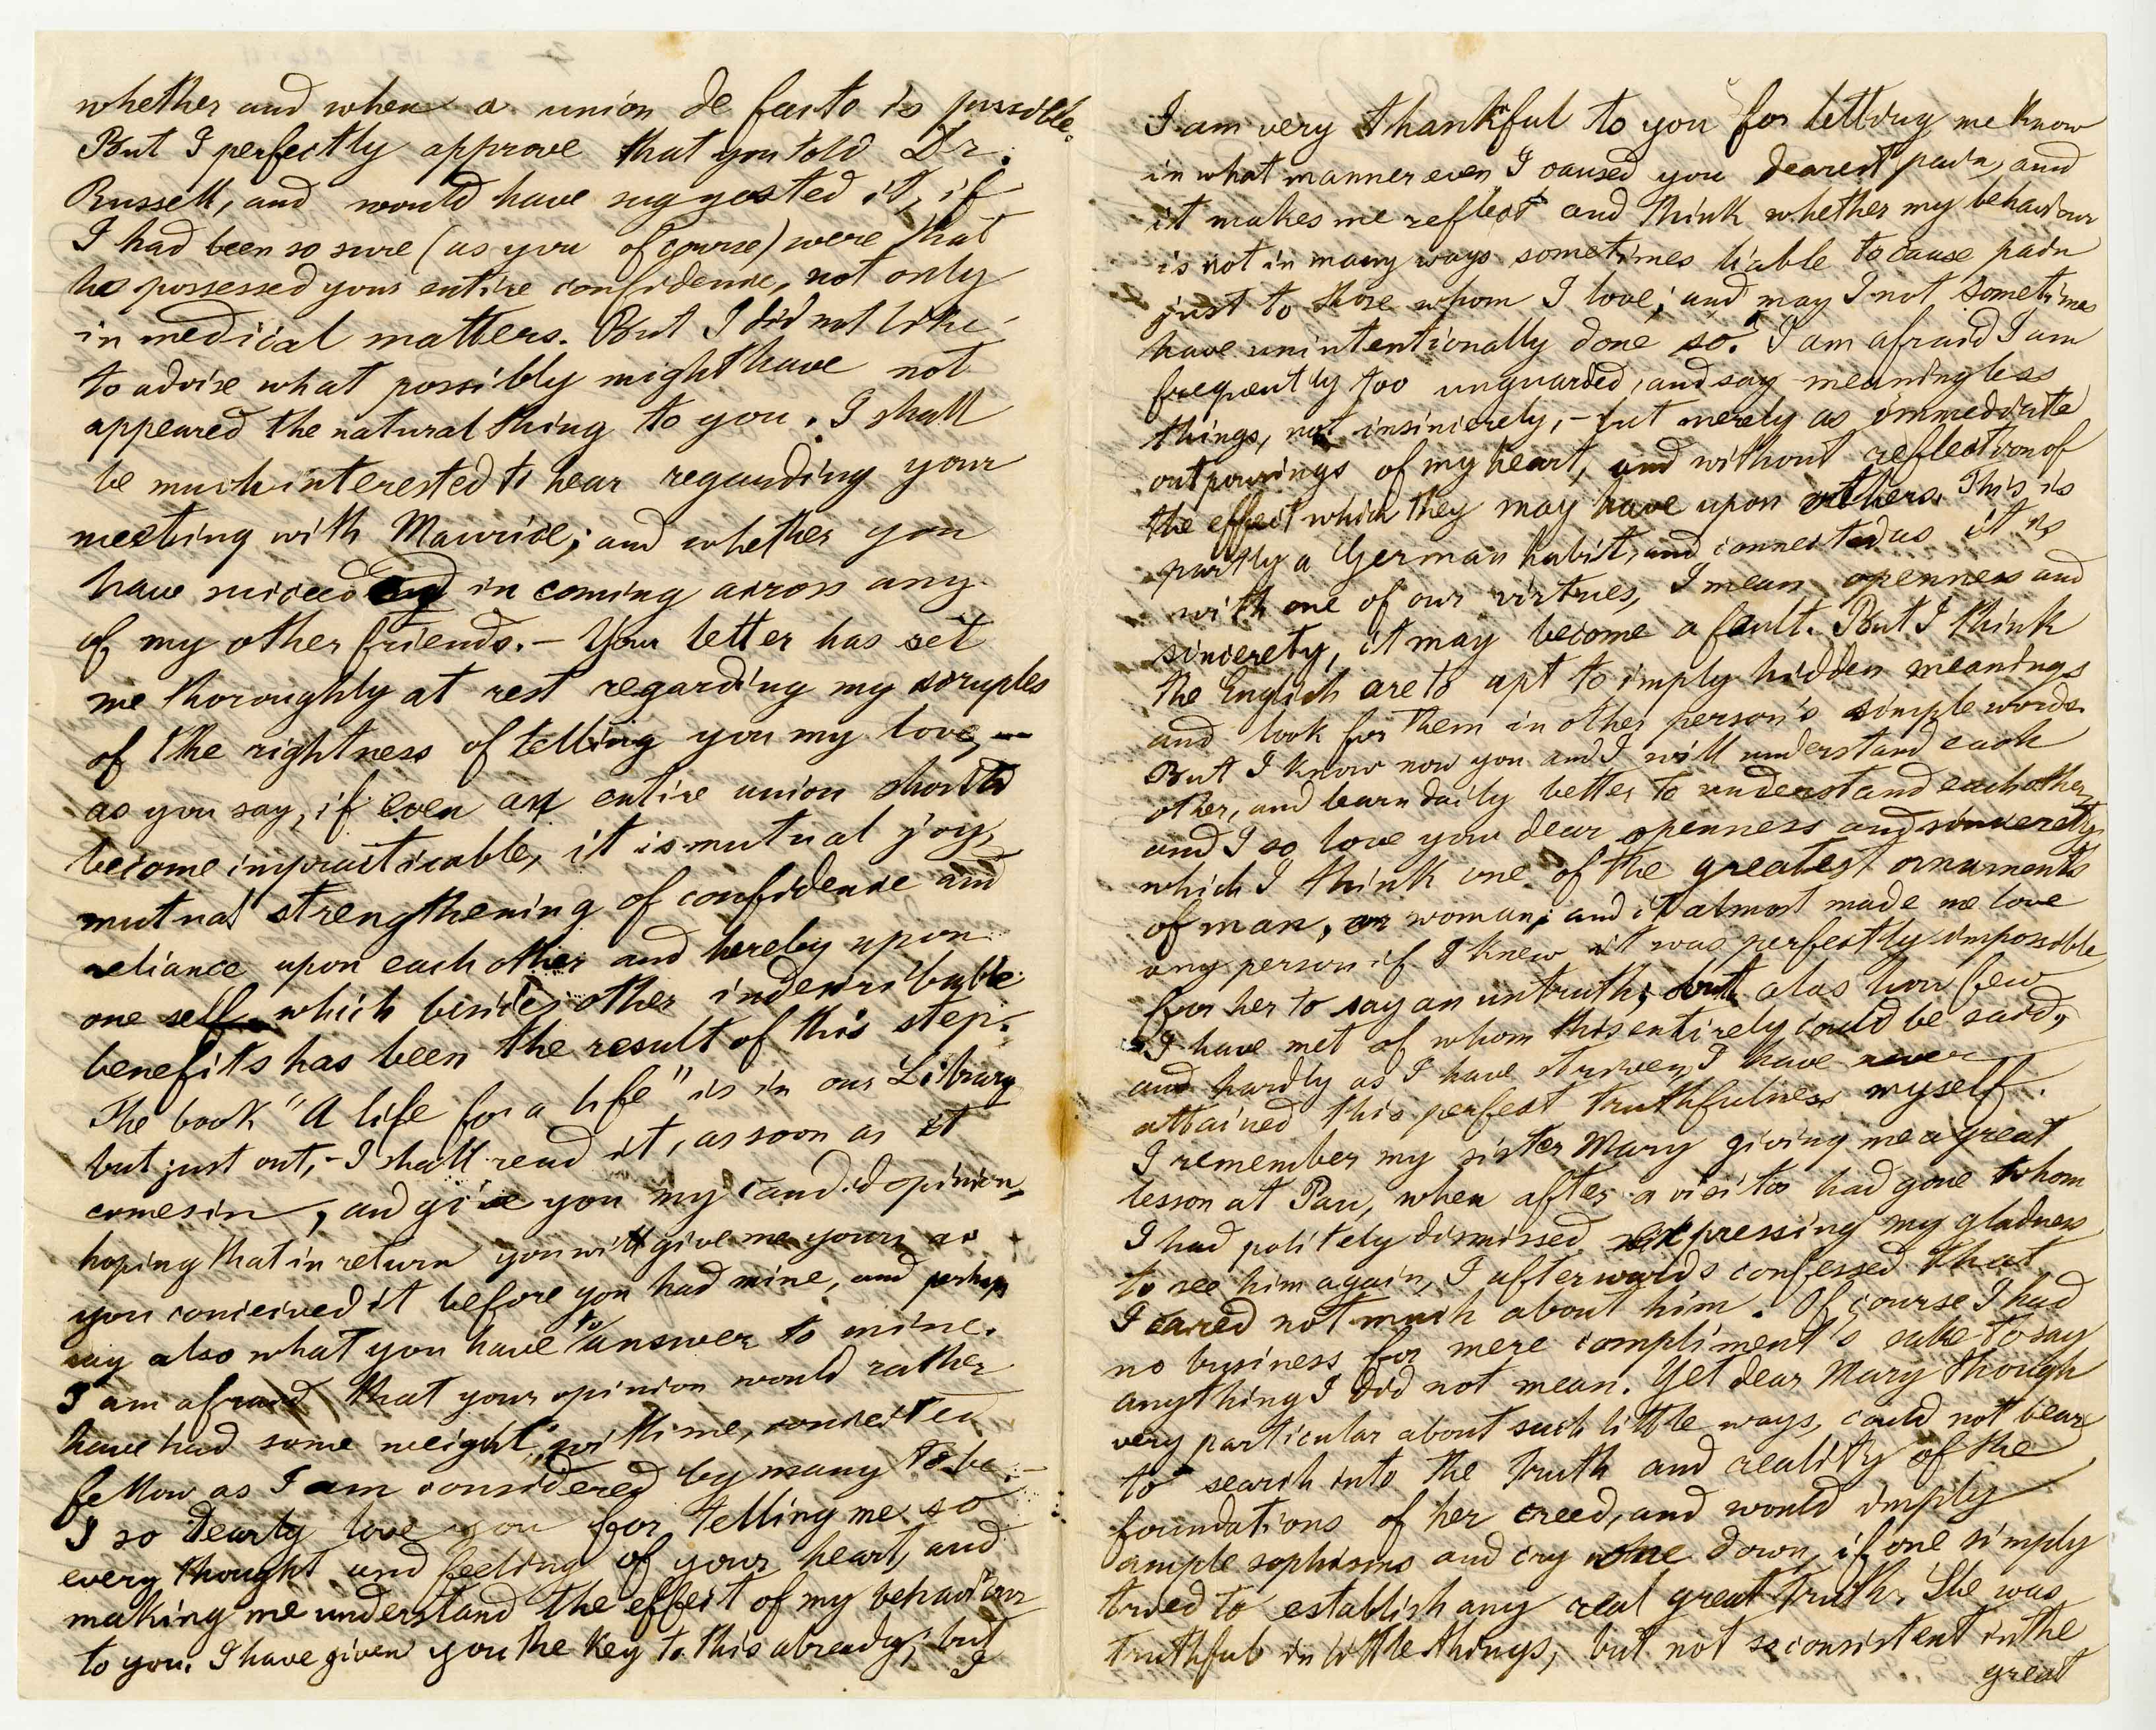 whether and when a union de facto is possible.
But I perfectly approve that you told Dr.
Russell, and would have suggested it, if
I had been so sure (as you of course) were that
he possessed your entire confidence, not only
in medical matters. But I did not like
to advise what possibly might have not
appeared the natural thing to you. I shall
be much interested to hear regarding your
meeting with Maurice; and whether you
have succeeded in coming across any
of my other friends. – Your letter has set
me thoroughly at rest regarding my scruples
of the rightness of telling you my love, –
as you say, if even an entire union should
become impracticable, it is mutual joy,
mutual strengthening of confidence and
reliance upon each other and hereby upon
one self which besides other indescribable
benefits has been the result of this step.
The book "A life for a life" is in our Library
but just out, – I shall read it, as soon as it
comes in, and give you my candid opinion,
hoping that in return you will give me yours as
you conceived it before you had mine, and perhaps
say also what you have to answer to mine.
I am afraid that your opinion would rather
have had some weight with me, conceited
fellow as I am considered by many to be. –
I so dearly love you for telling me so
every thought and feeling of your heart, and
making me understand the effect of my behaviour
to you. I have given you the key to this already; but
I
I am very thankful to you for letting me know
in what manner even I caused you dearest pain, and
it makes me reflect and think whether my behaviour
is not in many ways sometimes liable to cause pain
just to those whom I love; and may I not sometimes
have unintentionally done so? I am afraid I am
frequently too unguarded, and say meaningless
things, not insincerely, – but merely as immediate
outpourings of my heart, and without reflection of
the effect which they may have upon others. This is
partly a German habit, and connected as it is
with one of our virtues, I mean openness and
sincerety, it may become a fault. But I think
the English are to apt to imply hidden meanings
and look for them in other person's simple words.
But I know now you and I will understand each
other, and learn daily better to understand each other,
and I so love your dear openness and sincerety,
which I think one of the greatest ornaments
of man, or woman; and it almost made me love
any person if I knew it was perfectly impossible
for her to say an untruth; but alas how few
I have met of whom this entirely could be said,
and hardly as I have striven, I have never
attained this perfect truthfulness myself.
I remember my sister Mary giving me a great
lesson at Pau, when after a visitor had gone whom
I had politely dismissed expressing my gladness
to see him again, I afterwards confessed that
I cared not much about him. Of course I had
no business for mere compliment's sake to say
anything I did not mean. Yet dear Mary though
very particular about such little ways, could not bear
to search into the truth and reality of the
foundations of her creed, and would imply
ample sophisms and cry one down, if one simply
tried to establish any real great truth. She was
truthful in little things, but not so consistent in the
great